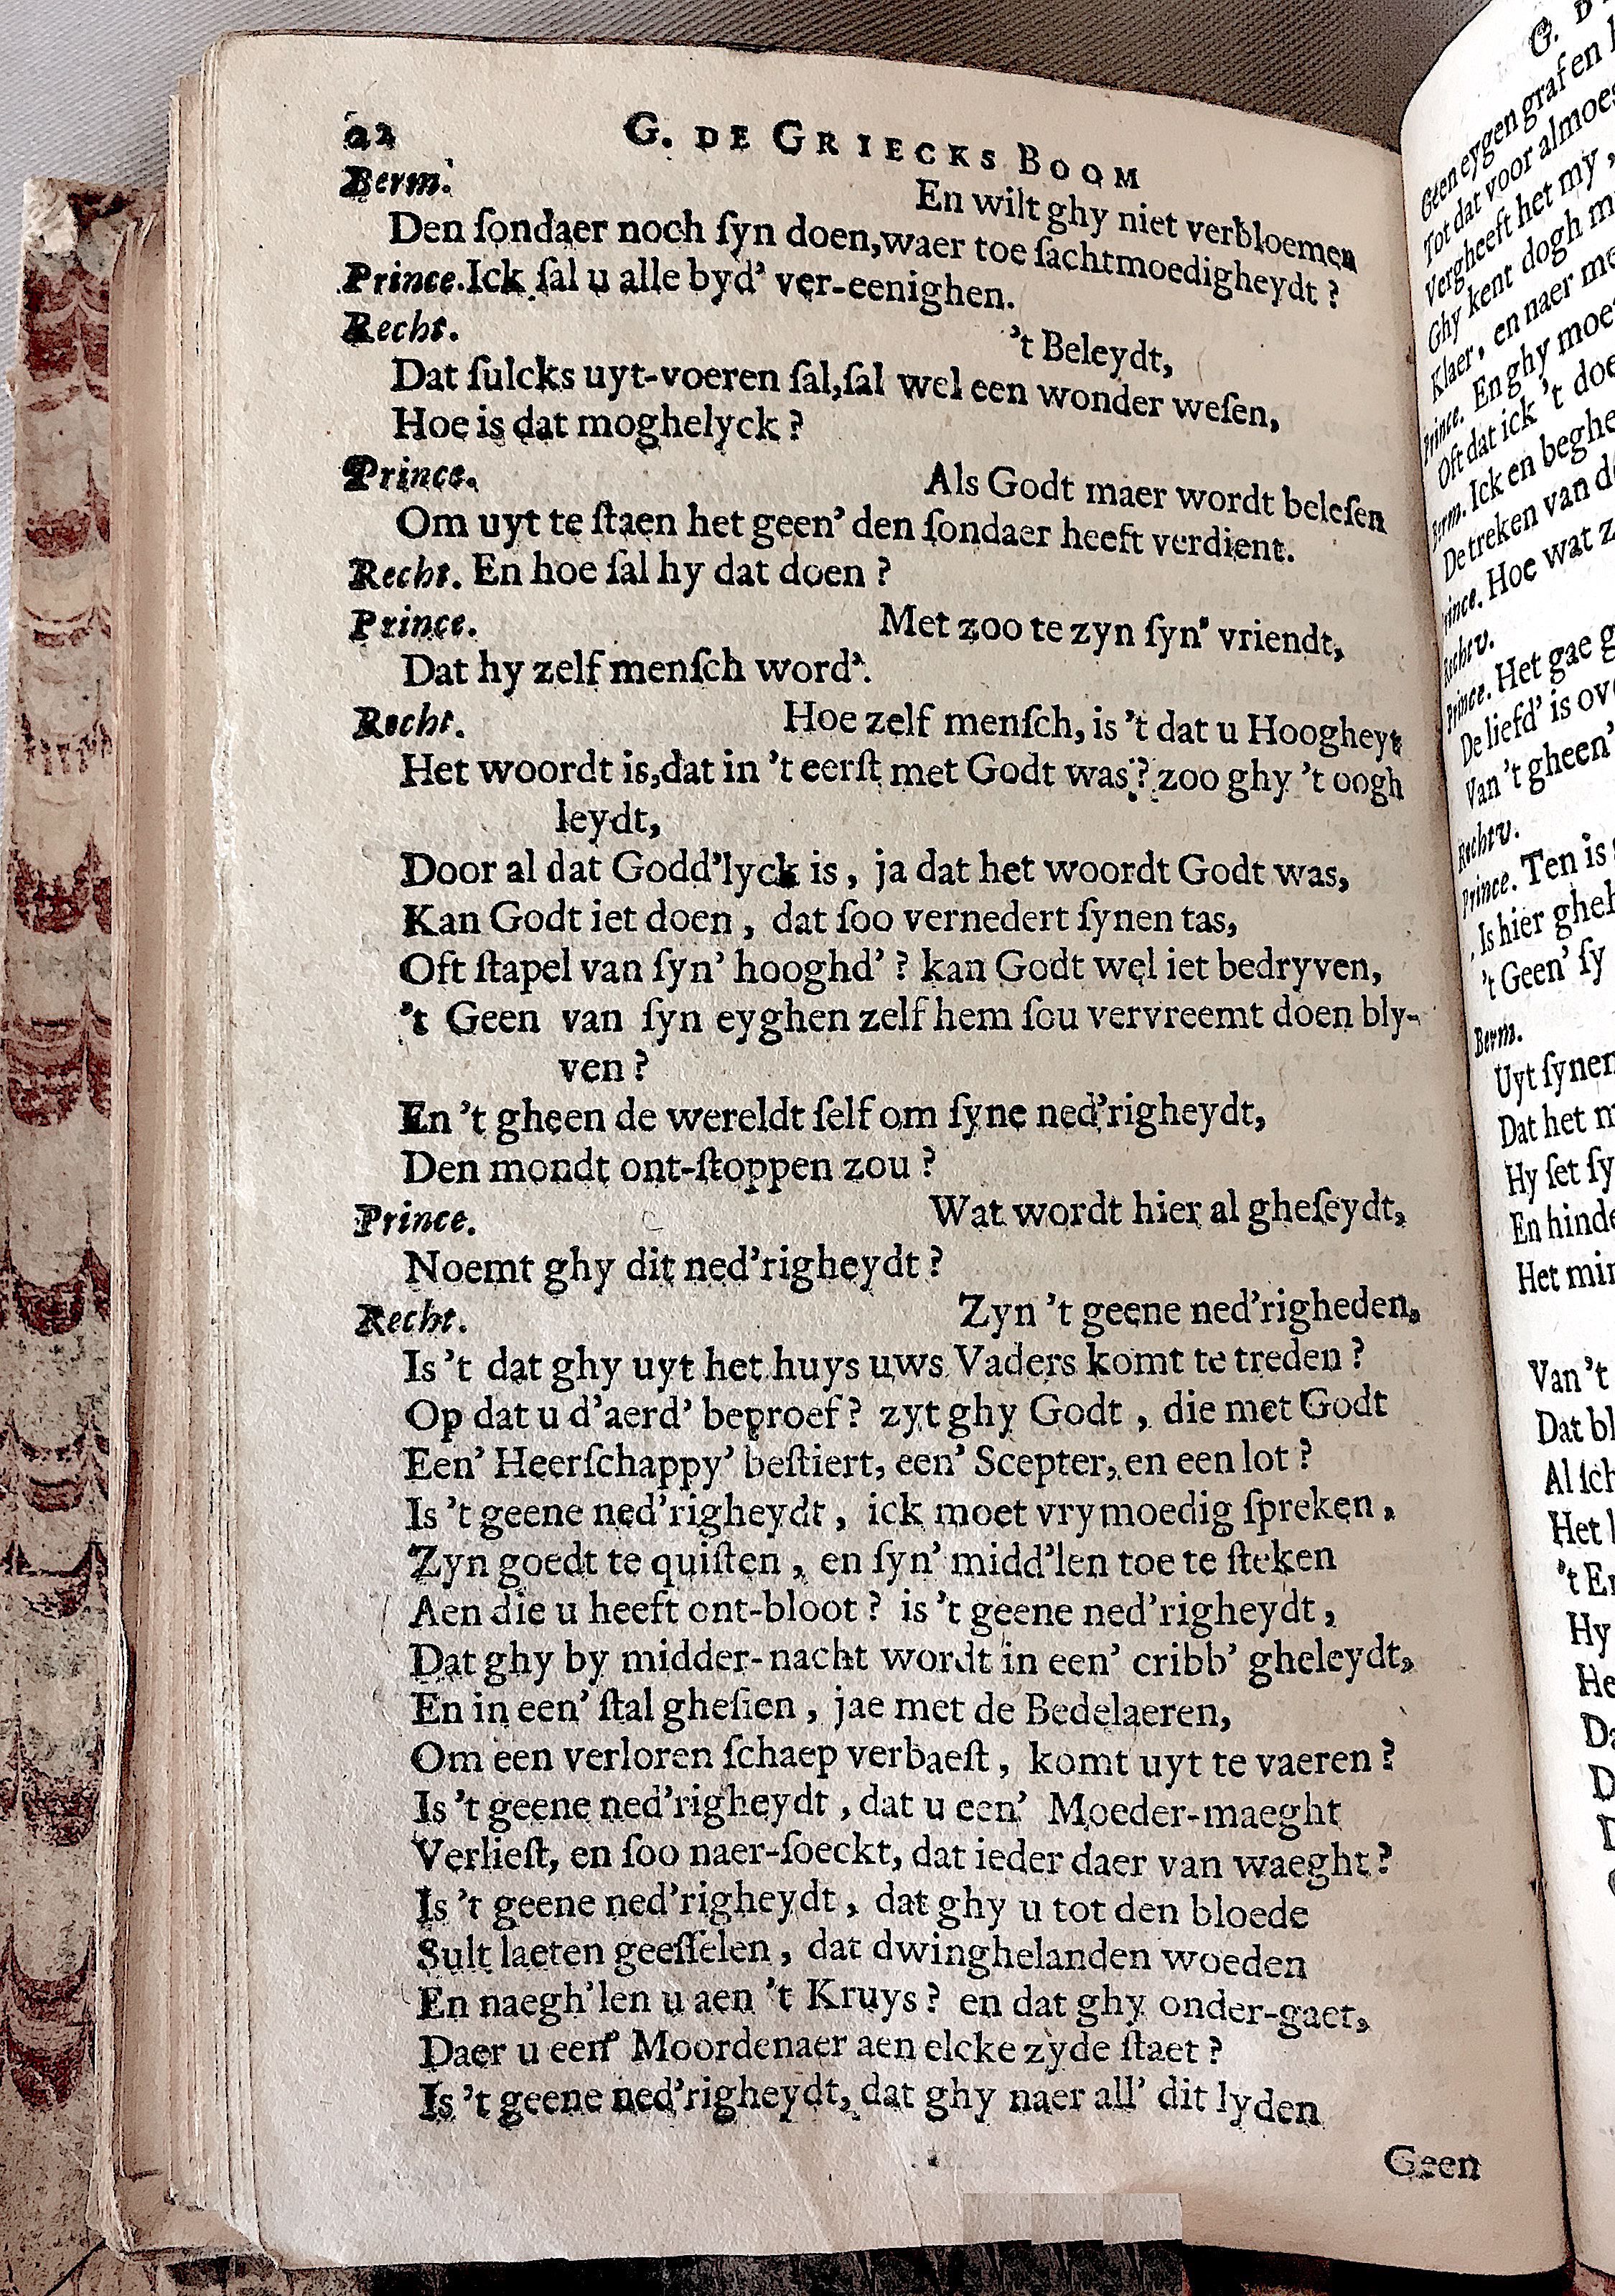 22 G. DE GRIECKS BOOM
Berm. En wilt ghy niet verbloemen
Den ſondaer noch ſyn doen,waer toe ſachtmoedigheydt ?
Prince.Ick ſal u alle byd' ver-eenighen.
Recht. 't Beleydt,
Dat ſulcks uyt-voeren ſal,ſal wel een wonder weſen,
Hoe is dat moghelyck ?
Prince. Als Godt maer wordt beleſen
Om uyt te ſtaen het geen' den ſondaer heeft verdient.
Recht. En hoe ſal hy dat doen ?
Prince. Met zoo te zyn ſyn' vriendt,
Dat hy zelf menſch word'.
Recht. Hoe zelf menſch, is 't dat u Hoogheyt
Het woordt is,dat in 't eerſt met Godt was? zoo ghy 't oogh
leydt,
Door al dat Godd'lyck is, ja dat het woordt Godt was,
Kan Godt iet doen, dat ſoo vernedert ſynen tas,
Oft ſtapel van ſyn' hooghd' ? kan Godt wel iet bedryven,
't Geen van ſyn eyghen zelf hem ſou vervreemt doen bly-
ven ?
En 't gheen de wereldt ſelf om ſyne ned'righeydt,
Den mondt ont-ſtoppen zou ?
Prince. Wat wordt hier al gheſeydt,
Noemt ghy dit ned'righeydt ?
Recht. Zyn 't geene ned'righeden,
Is 't dat ghy uyt het huys uws Vaders komt te treden ?
Op dat u d'aerd' beproef ? zyt ghy Godt, die met Godt
Een' Heerſchappy' beſtiert, een' Scepter, en een lot ?
Is 't geene ned'righeydt, ick moet vrymoedig ſpreken,
Zyn goedt te quiſten, en ſyn' midd'len toe te ſteken
Aen die u heeft ont-bloot ? is 't geene ned'righeydt,
Dat ghy by midder-nacht wordt in een' cribb' gheleydt,
En in een' ſtal gheſien, jae met de Bedelaeren,
Om een verloren ſchaep verbaeſt, komt uyt te vaeren ?
Is 't geene ned'righeydt, dat u een' Moeder-maeght
Verlieſt, en ſoo naer-ſoeckt, dat ieder daer van waeght ?
Is 't geene ned'righeydt, dat ghy u tot den bloede
Sult laeten geeſſelen, dat dwinghelanden woeden
En naegh'len u aen 't Kruys ? en dat ghy onder-gaet,
Daer u een' Moordenaer aen elcke zyde ſtaet ?
Is 't geene ned'righeydt, dat ghy naer all' dit lyden
Geen
Geen eygen graf en
Tot dat voor almoes
Vergheeft het my,
Ghy kent dogh m
Klaer, en naer me
Prince. En ghy moe
Oft dat ick 't doe
Berm. Ick en beghe
De treken van d
Prince. Hoe wat z
Recht v.
Prince. Het gae g
De liefd' is ov
Van 't gheen'
Recht v.
Prince. Ten is
Is hier gheh
't Geen' ſy
Berm.
Uyt ſynen
Dat het m
Hy ſet ſy
En hinde
Het min
Van 't
Dat bl
Al ſch
Het
't En
Hy
He
Da
D